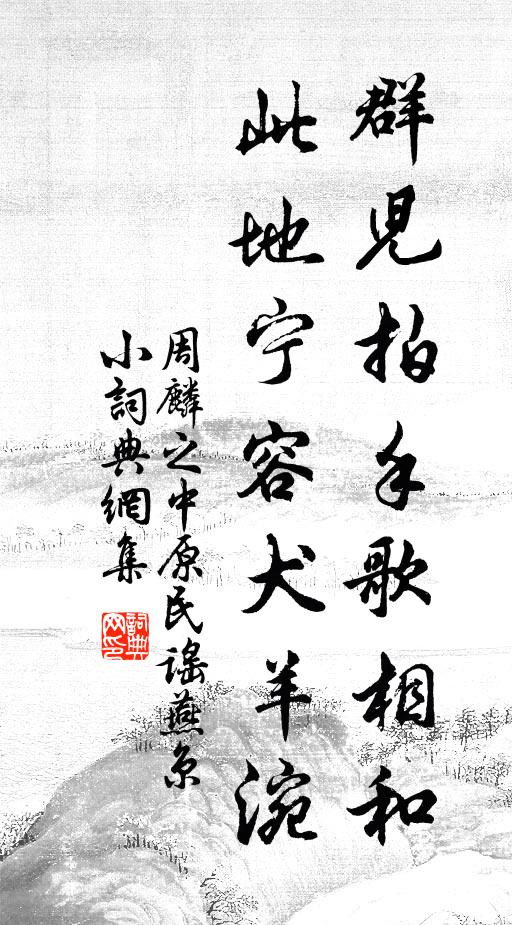 群児拍手歌相和
此地宁容犬羊涴
周麟之中原民謡燕京
小詞典網集
詞典网印